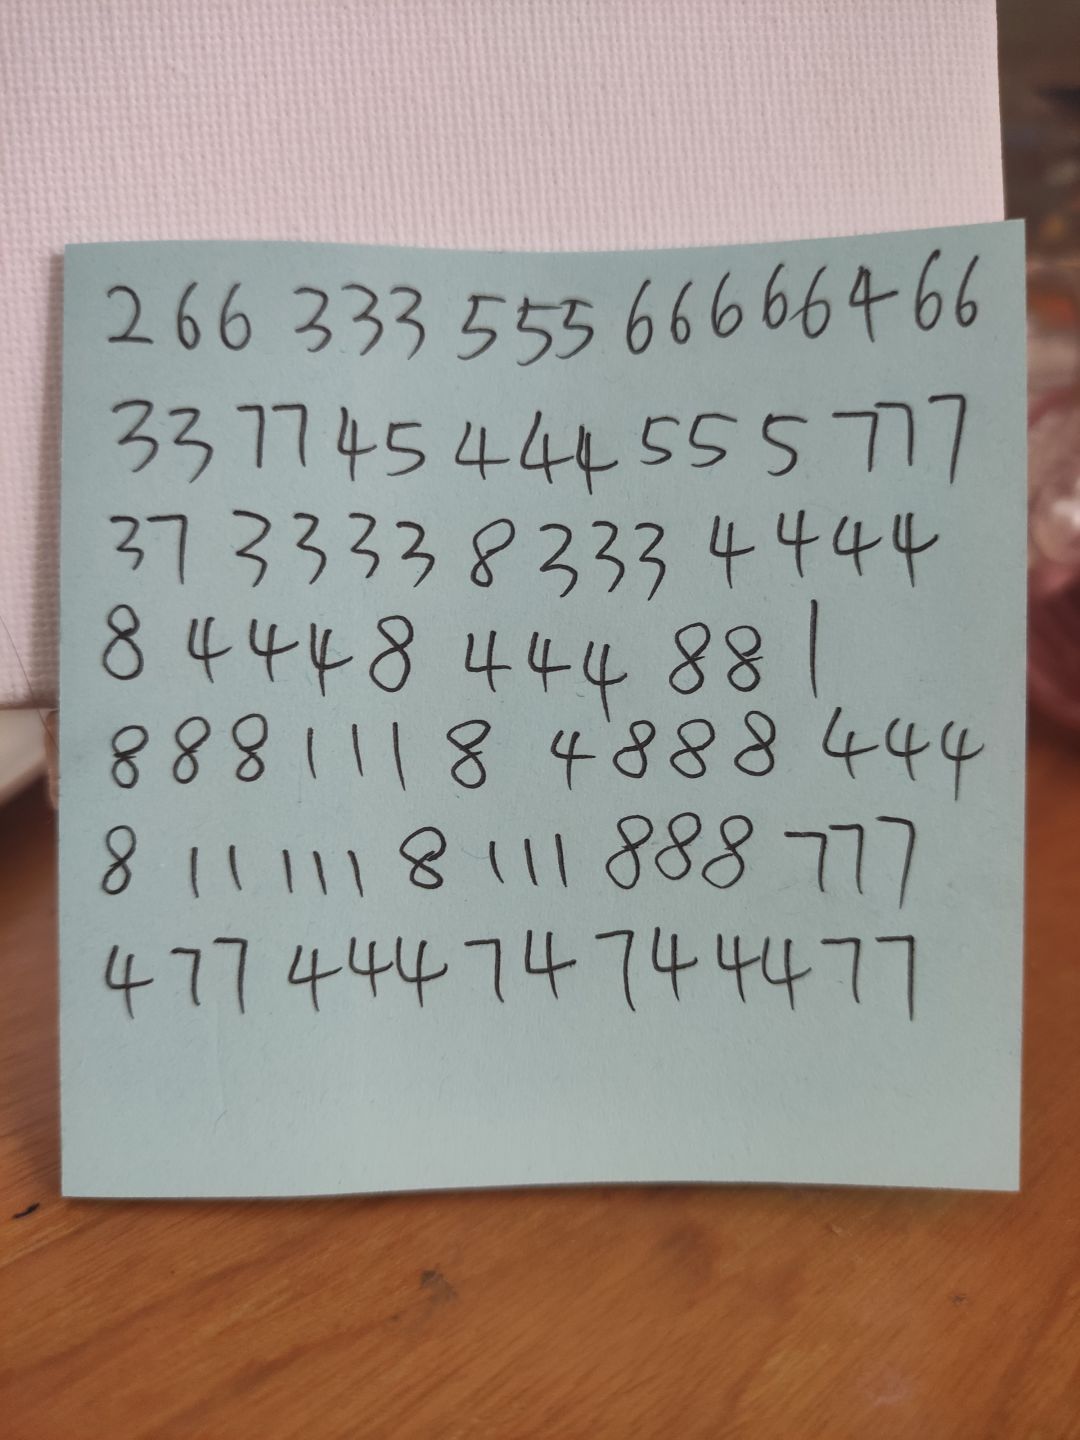 266 333 555 66666466
33 77 45 444 555 777
37 3333 8 333 4444
8 444 8 444 88 1
888 111 8 4888 444
8 11 111 8 111 888 777
4 77 444 74 744477